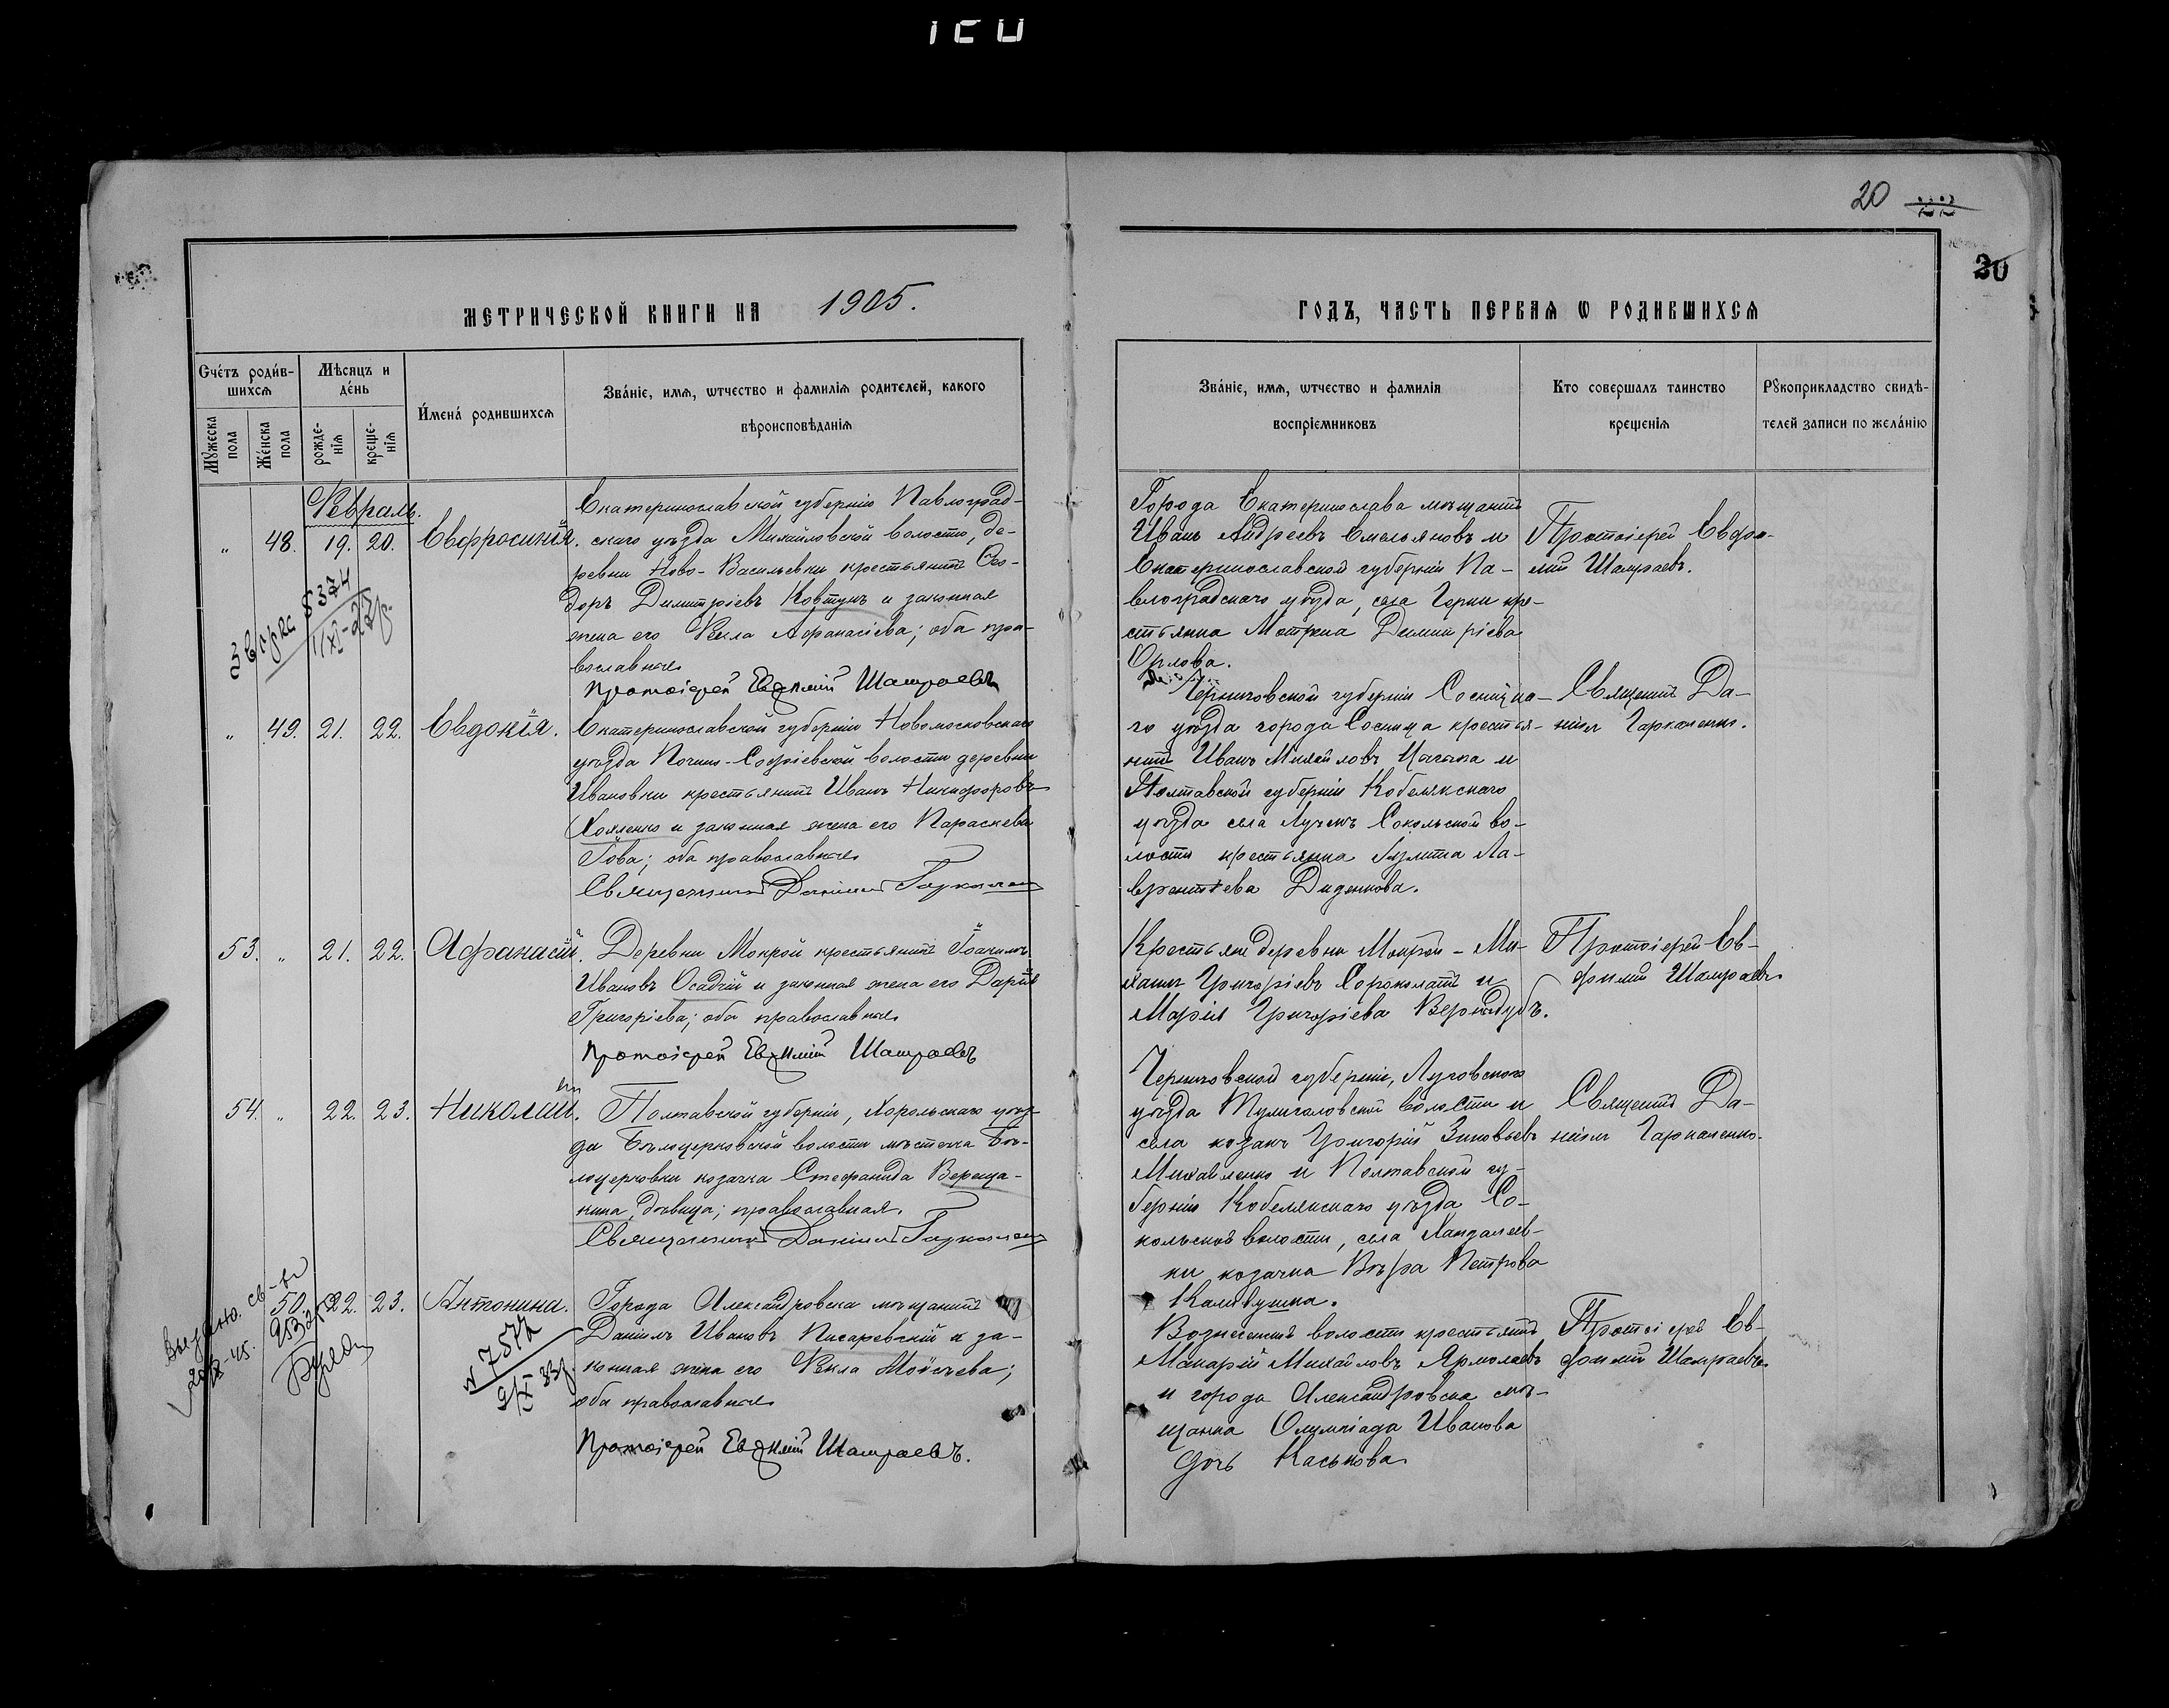 20
30
МЕТРИЧЕСКОЙ КНИГИ НА 1905.
ГОДЪ, ЧАСТЬ ПЕРВАЯ Ѡ РОДИВШИХСЯ
Счетъ родив-
шихся
Мꙋжеска пола
Женска пола
Мѣсяцъ и
день
рожде-
нія
креще-
нія
Имена родившихся
Званіе, имя, ѿтчество и фамилія родителей, какого
вѣроисповѣданія
Званіе, имя, ѿтчество и фамилія
воспріемниковъ
Кто совершалъ таинство
крещенія
Рꙋкоприкладство свидѣ-
телей записи по желанію
Февраль.
„ 48. 19. 20. Евфросинія.
Екатеринославской губерніи Павлоград-
скаго уѣзда Михайловской волости, де-
ревни Ново-Васильевки крестьянинъ Ѳео-
доръ Димитріевъ Ковтунъ и законная
жена его Ѳекла Аѳанасіева; оба пра-
вославные
Протоіерей Евѳимій Шамраевъ
Города Екатеринослава мѣщанинъ
Иванъ Андреевъ Емельяновъ и
Екатеринославской губерніи Па-
влоградскаго уѣзда, села Черни кре-
стьянка Мотрона Димитріева
Орлова.
Протоіерей Евѳи-
мій Шамраевъ.
„ 49. 21. 22. Евдокія.
Екатеринославской губерніи Новомосковскаго
уѣзда Почино-Софіевской волости деревни
Ивановки крестьянинъ Иванъ Никифоровъ
и законная жена его Параскева
оба православные
Священникъ Даніилъ
Черниговской губерніи Сосницка-
го уѣзда города Сосница крестья-
нинъ Иванъ Михайловъ и
Полтавской губерніи Кобелякскаго
уѣзда села Лучекъ Сокольской во-
лости крестьянка Ла-
врентіева Диденкова.
Священникъ Да-
ніилъ Гаркаленко.
53. „ 21. 22. Аѳанасій.
Деревни Мокрой крестьянинъ Іоакимъ
Ивановъ Осадчій и законная жена его Дарія
Григоріева; оба православные
Протоіерей Евѳимій Шамраевъ
Крестьяне деревни Мокрой - Ми-
хаилъ Григоріевъ Сороколатъ и
Марія Григоріева Вернидубъ.
Протоіерей Ев-
ѳимій Шамраевъ
54. „ 22. 23. Николай.
Полтавской губерніи, Хорольскаго уѣз-
да Бѣлоцерковской волости мѣстечка Бѣ-
лоцерковки козачка Стефанида Вереща-
кина, дѣвица; православная.
Священникъ Даніилъ
Черниговской губерніи,
уѣзда волости и
села козакъ Григорій Зиновьевъ
Михайленко и Полтавской гу-
берніи Кобелякскаго уѣзда Со-
кольской волости, села
ки козачка Вѣра Петрова
Священникъ Да-
ніилъ Гаркаленко.
„ 50. 22. 23. Антонина.
Города Александровска мѣщанинъ
Даніилъ Ивановъ Писаревскій и за-
конная жена его Ѳекла Моѵсеева;
оба православные
Протоіерей Евѳимій Шамраевъ.
волости крестьянинъ
Макарій Михайловъ Ярмолаевъ
и города Александровска мѣ-
щанка Олимпіада Иванова
дочь Каськова
Протоіерей Ев-
ѳимій Шамраевъ